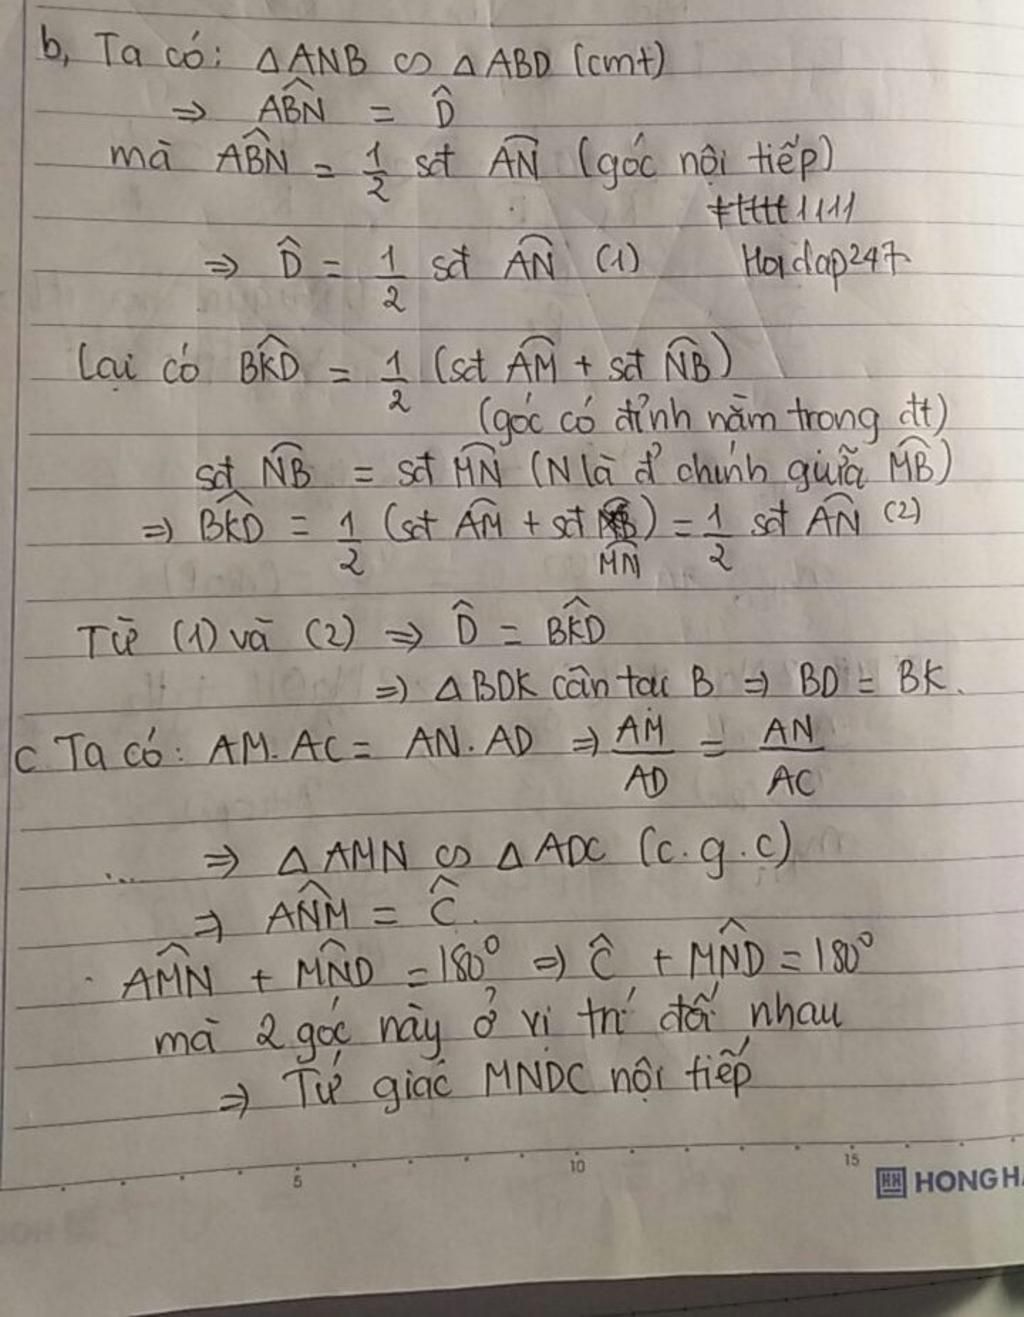 b, Ta có: △ANB ∽ △ABD (cmt)
⇒ ABN̂ = D̂
mà ABN̂ = 1/2 sđ AN⌒ (góc nội tiếp)
ttttt1111
⇒ D̂ = 1/2 sđ AN⌒ (1) Hoidap247
Lại có BKD̂ = 1/2 (sđ AM⌒ + sđ NB⌒)
(góc có đỉnh nằm trong đt)
sđ NB⌒ = sđ MN⌒ (N là đ' chính giữa MB⌒)
⇒ BKD̂ = 1/2 (sđ AM⌒ + sđ MN⌒) = 1/2 sđ AN⌒ (2)
Từ (1) và (2) ⇒ D̂ = BKD̂
⇒ △BDK cân tại B ⇒ BD = BK.
c Ta có: AM.AC = AN.AD ⇒ AM/AD = AN/AC
... ⇒ △AMN ∽ △ADC (c.g.c)
⇒ ANM̂ = Ĉ.
AMN̂ + MND̂ = 180° ⇒ Ĉ + MND̂ = 180°
mà 2 góc này ở vị trí đối nhau
⇒ Tứ giác MNDC nội tiếp
5 10 15
HH HONG HA